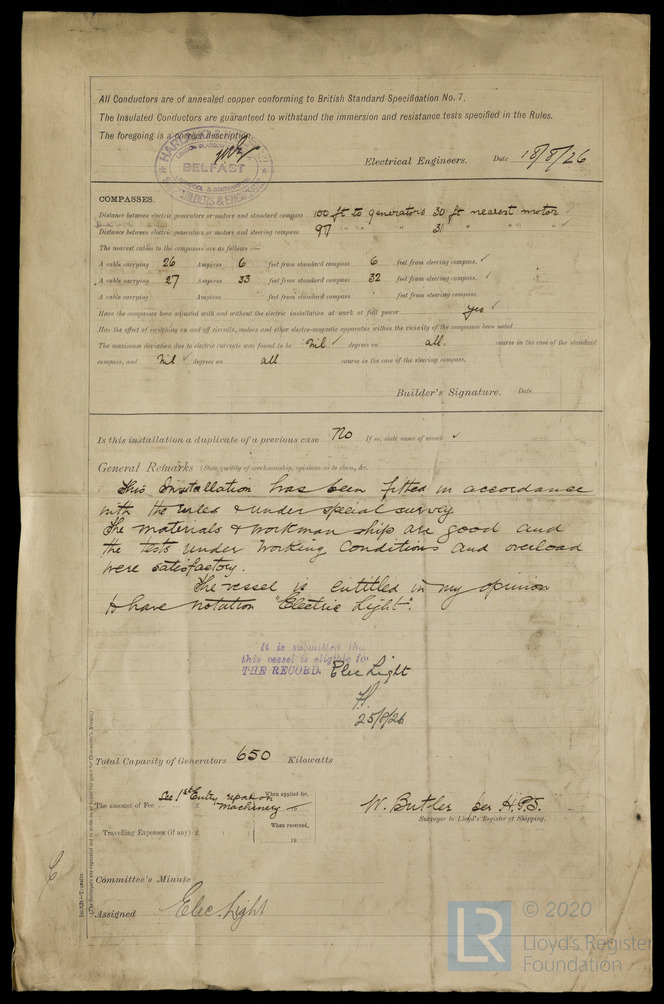 All Conductors are of annealed copper conforming to British Standard Specification No. 7.
The Insulated Conductors are guaranteed to withstand the immersion and resistance tests specified in the Rules.
The foregoing is a correct description
BELFAST
Electrical Engineers. Date 18/8/26
COMPASSES.
Distance between electric generators or motors and standard compass 100 ft to generators 30 ft nearest motor
Distance between electric generators or motors and steering compass 97 " " " " 31 " " "
The nearest cables to the compasses are as follows :—
A cable carrying 26 Ampères 6 feet from standard compass 6 feet from steering compass.
A cable carrying 27 Ampères 33 feet from standard compass 32 feet from steering compass.
A cable carrying Ampères feet from standard compass feet from steering compass.
Have the compasses been adjusted with and without the electric installation at work at full power yes
Has the effect of switching on and off circuits, motors and other electro-magnetic apparatus within the vicinity of the compasses been noted
The maximum deviation due to electric currents was found to be Nil degrees on all course in the case of the standard
compass, and Nil degrees on all course in the case of the steering compass.
Builder's Signature. Date
Is this installation a duplicate of a previous case No If so, state name of vessel
General Remarks (State quality of workmanship, opinions as to class, &c.
This Installation has been fitted in accordance
with the rules & under special survey
The materials & workmanship are good and
the tests under working conditions and overload
were satisfactory.
The vessel is entitled in my opinion
to have notation "Electric Light".
It is submitted that
this vessel is eligible for
THE RECORD. Elec Light
25/8/26
Total Capacity of Generators 650 Kilowatts
The amount of Fee £ See 1st Entry report on Machinery When applied for,
Travelling Expenses (if any) £ : : When received,
19
W. Butler per H.P.S.
Surveyor to Lloyd's Register of Shipping.
Committee's Minute
Assigned Elec. Light
LR © 2020
Lloyd's Register
Foundation